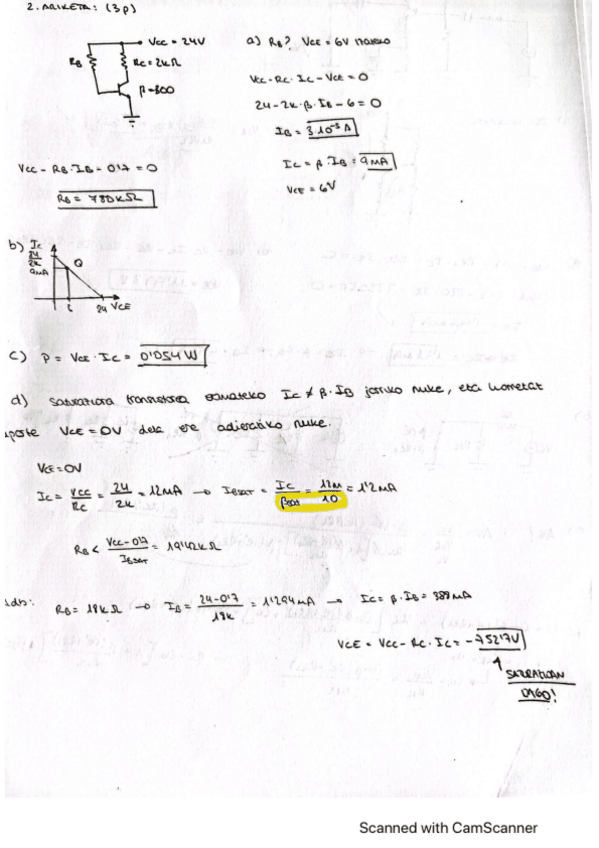 2. ARIKETA: (3p)
Vcc = 24V
RB
Rc = 2kΩ
β = 300
a) RB? VCE = 6V
Vcc - Rc · Ic - VCE = 0
24 - 2k · β · IB - 6 = 0
IB = 3·10⁻⁵ A
Ic = β · IB = 9mA
VCE = 6V
Vcc - RB · IB - 0'7 = 0
RB = 780kΩ
b) Ic
24
2k
9mA
Q
24 VCE
c) P = VCE · Ic = 0'054 W
d) Saturaziora transistorea eramateko Ic ≠ β · IB jarriko nuke, eta horretaz
aparte VCE = 0V dela ere adieraziko nuke.
VCE = 0V
Ic = Vcc/Rc = 24/2k = 12mA → IBSAT = Ic/βSAT = 12m/10 = 1'2mA
RB < Vcc - 0'7/IBSAT = 19'42kΩ
Adb: RB = 18kΩ → IB = 24 - 0'7/18k = 1'294mA → Ic = β · IB = 388mA
VCE = Vcc - Rc · Ic = -752'7V
SATURATUAN
DAGO!
Scanned with CamScanner